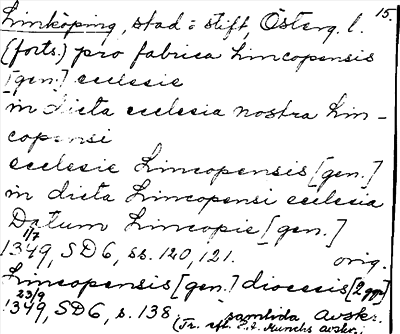 15.
Linköping, stad o stift, Österg. l.
(forts.) pro fabrica Lincopensis
[gen.] ecclesie
in dicta ecclesia nostra Lin-
copensi
ecclesie Lincopensis [gen.]
in dicta Lincopensi ecclesia
Datum Lincopie [gen.]
1/7
1349, SD6, ss. 120, 121. orig.
Lincopensis [gen.] diocesis [2 ggr]
23/9
1349, SD6, s. 138, samtida avskr.
(Tr. eft. P. A. Munchs avskr.)